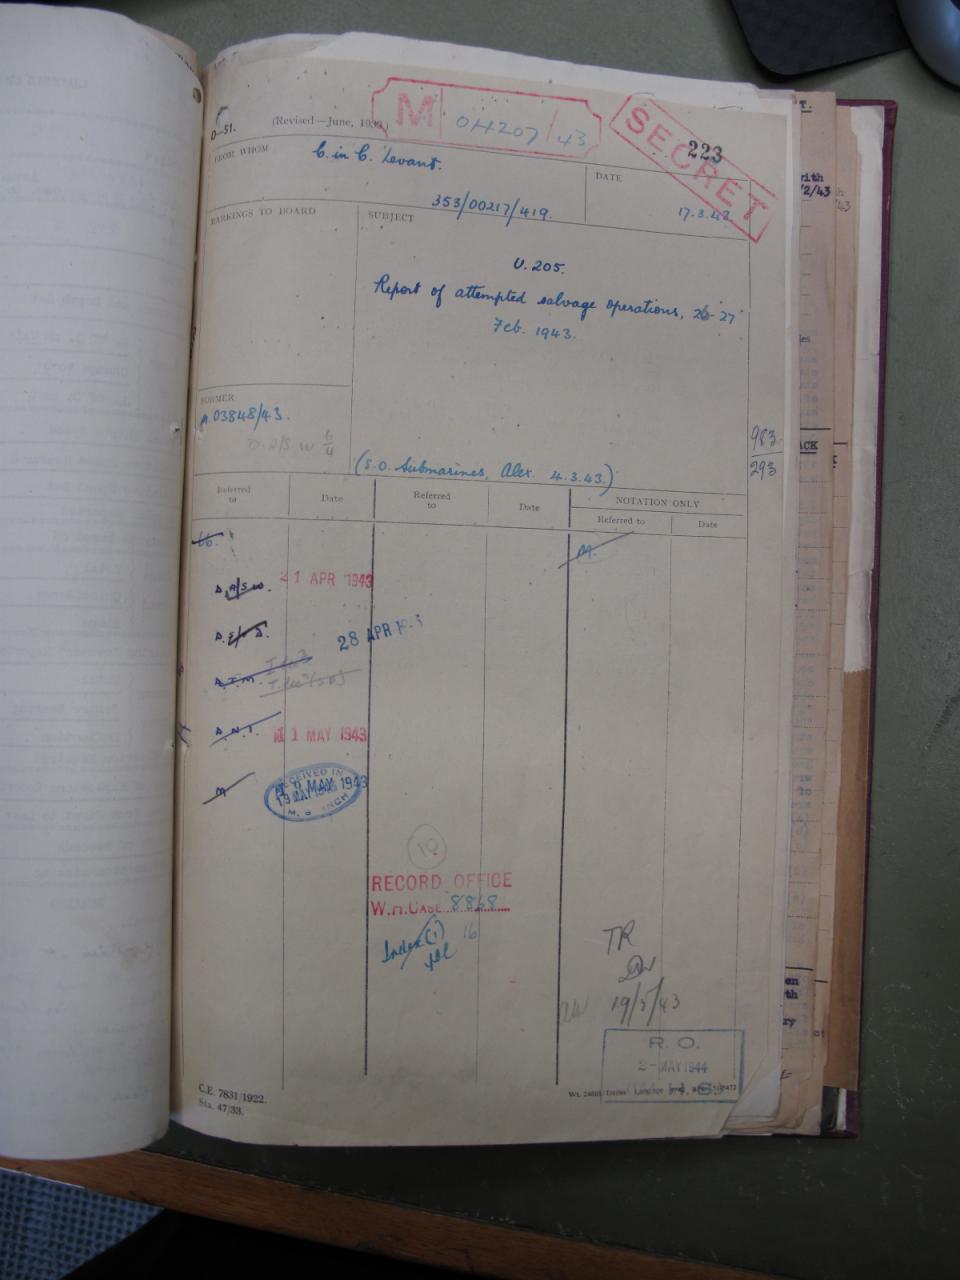 D—51.
(Revised—June, 1939.)
M 04207/43
SECRET
223
FROM WHOM
C. in C. Levant.
353/00217/419.
DATE
17.3.43
MARKINGS TO BOARD
SUBJECT
U. 205.
Report of attempted salvage operations, 26-27
Feb. 1943.
FORMER
M.03848/43.
D.A/S W 6/4
983
293
(S.O. Submarines, Alex. 4.3.43.)
Referred to
Date
Referred to
Date
NOTATION ONLY
Referred to
Date
M.
D.A/S W.
21 APR 1943
28 APR
D.T.M.
D.N.I.
11 MAY 1943
M
RECEIVED IN
19 MAY 1943
M. BRANCH
10
RECORD OFFICE
W.H. CASE 8868
Index (1)
16
TR
19/5/43
R. O.
2-MAY 1944
C.E. 7831/1922.
Sta. 47/33.